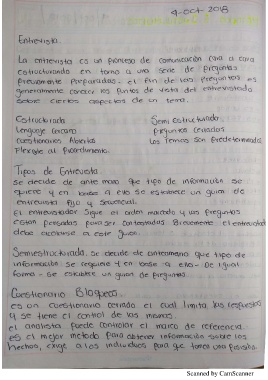 9-oct 2018
Entrevista.
La entrevista es un proceso de comunicación cara a cara
estructurando en torno a una serie de preguntas
previamente preparadas. el fin de las preguntas es
generalmente conocer los puntos de vista del entrevistado
sobre ciertos aspectos de un tema.
Estructurada Semi estructurada
Lenguaje cercano preguntas cerradas
cuestionarios Abiertos los temas son predeterminados
Flexible al
Tipos de Entrevista
se decide de ante mano que tipo de información se
quiere y en base a ello se establece un guion de
entrevista fijo y secuencial.
El entrevistador sigue el orden marcado y las preguntas
están pensadas para ser contestadas brevemente el entrevistado
debe acotarse a este guion.
Semiestructurada. se decide de antemano que tipo de
información se requiere y en base a ello- De igual
forma - se establece un guion de preguntas.
Cuestionario
es un cuestionario cerrado el cual limita las respuestas
y se tiene el control de las mismas.
el analista puede controlar el marco de referencia.
es el mejor metodo para obtener información sobre los
hechos, exige a los individuos para que tomen una
Scanned by CamScanner